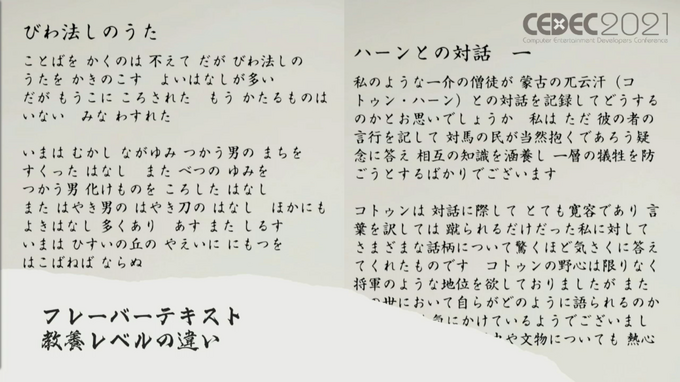 CEDEC2021
Computer Entertainment Developers Conference
びわ法しのうた
ことばを かくのは 不えて だが びわ法しの
うたを かきのこす　よいはなしが多い
だが もうこに ころされた　もう かたるものは
いない　みな わすれた
いまは むかし ながゆみ つかう男の まちを
すくった はなし　また べつの ゆみを
つかう男 化けものを ころした はなし
また はやき男の はやき刀の はなし　ほかにも
よきはなし 多くあり　あす また しるす
いまは ひすいの丘の やえいに にもつを
はこばねば ならぬ
フレーバーテキスト
教養レベルの違い
ハーンとの対話　一
私のような一介の僧徒が 蒙古の兀云汗（コ
トゥン・ハーン）との対話を記録してどうする
のかとお思いでしょうか　私は ただ 彼の者の
言行を記して 対馬の民が当然抱くであろう疑
念に答え 相互の知識を涵養し 一層の犠牲を防
ごうとするばかりでございます
コトゥンは 対話に際して とても寛容であり 言
葉を訳しては 蹴られるだけだった私に対して
さまざまな話柄について驚くほど気さくに答え
てくれたものです　コトゥンの野心は限りなく
将軍のような地位を欲しておりましたが また
の世において自らがどのように語られるのか
気にかけているようでございまし
や文物についても 熱心